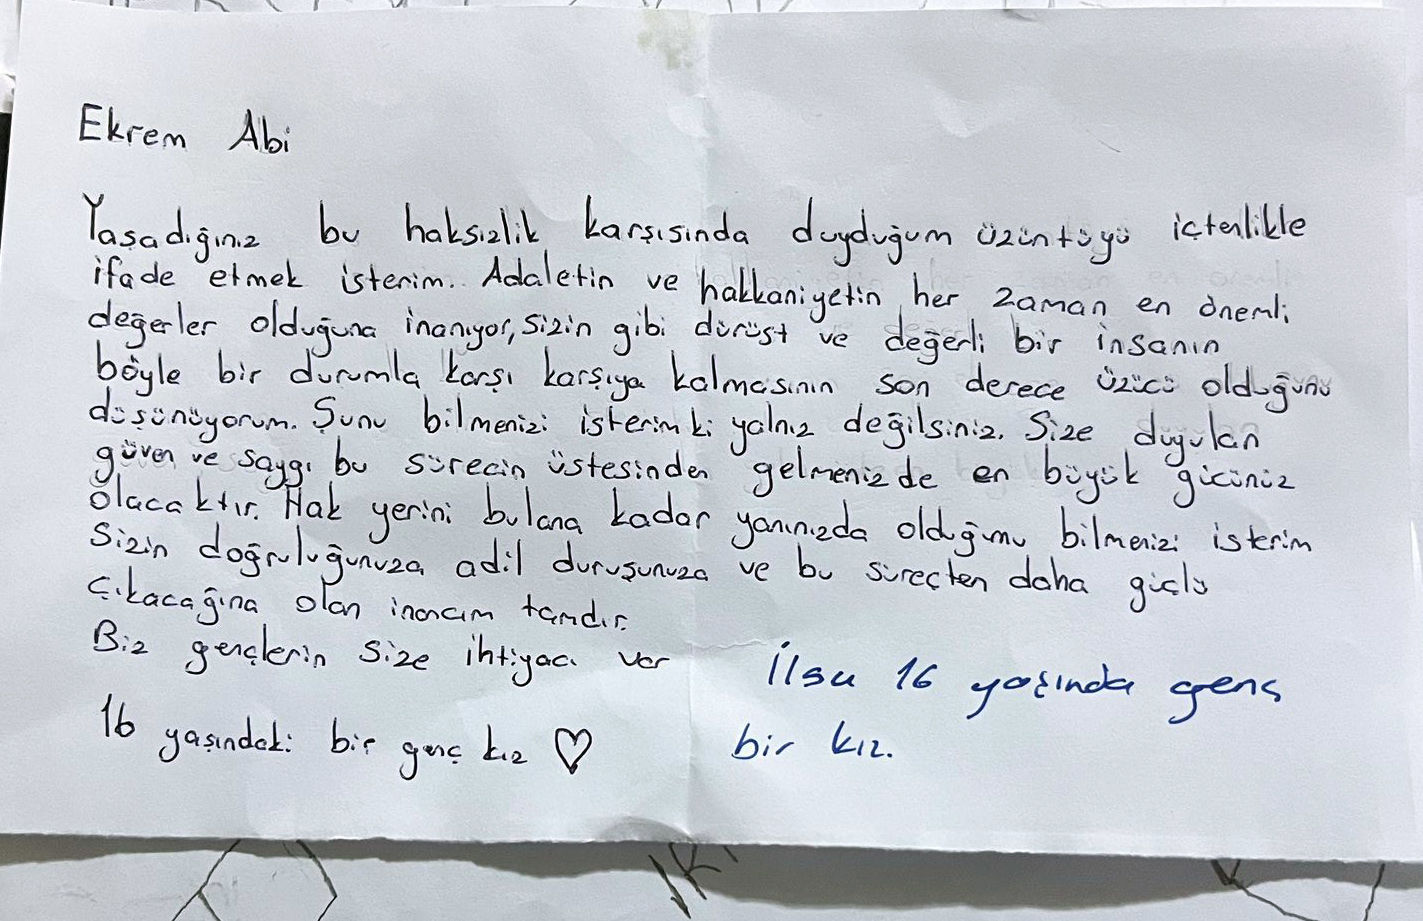 Ekrem Abi
Yaşadığınız bu haksızlık karşısında duyduğum üzüntüyü içtenlikle
ifade etmek isterim. Adaletin ve hakkaniyetin her zaman en önemli
değerler olduğuna inanıyor, sizin gibi dürüst ve değerli bir insanın
böyle bir durumla karşı karşıya kalmasının son derece üzücü olduğunu
düşünüyorum. Şunu bilmenizi isterim ki yalnız değilsiniz. Size duyulan
güven ve saygı bu sürecin üstesinden gelmenizde en büyük gücünüz
olacaktır. Hak yerini bulana kadar yanınızda olduğumu bilmenizi isterim
Sizin doğruluğunuza adil duruşunuza ve bu süreçten daha güçlü
çıkacağına olan inancım tamdır.
Biz gençlerin size ihtiyacı var
16 yaşındaki bir genç kız ♡
İlsu 16 yaşında genç
bir kız.